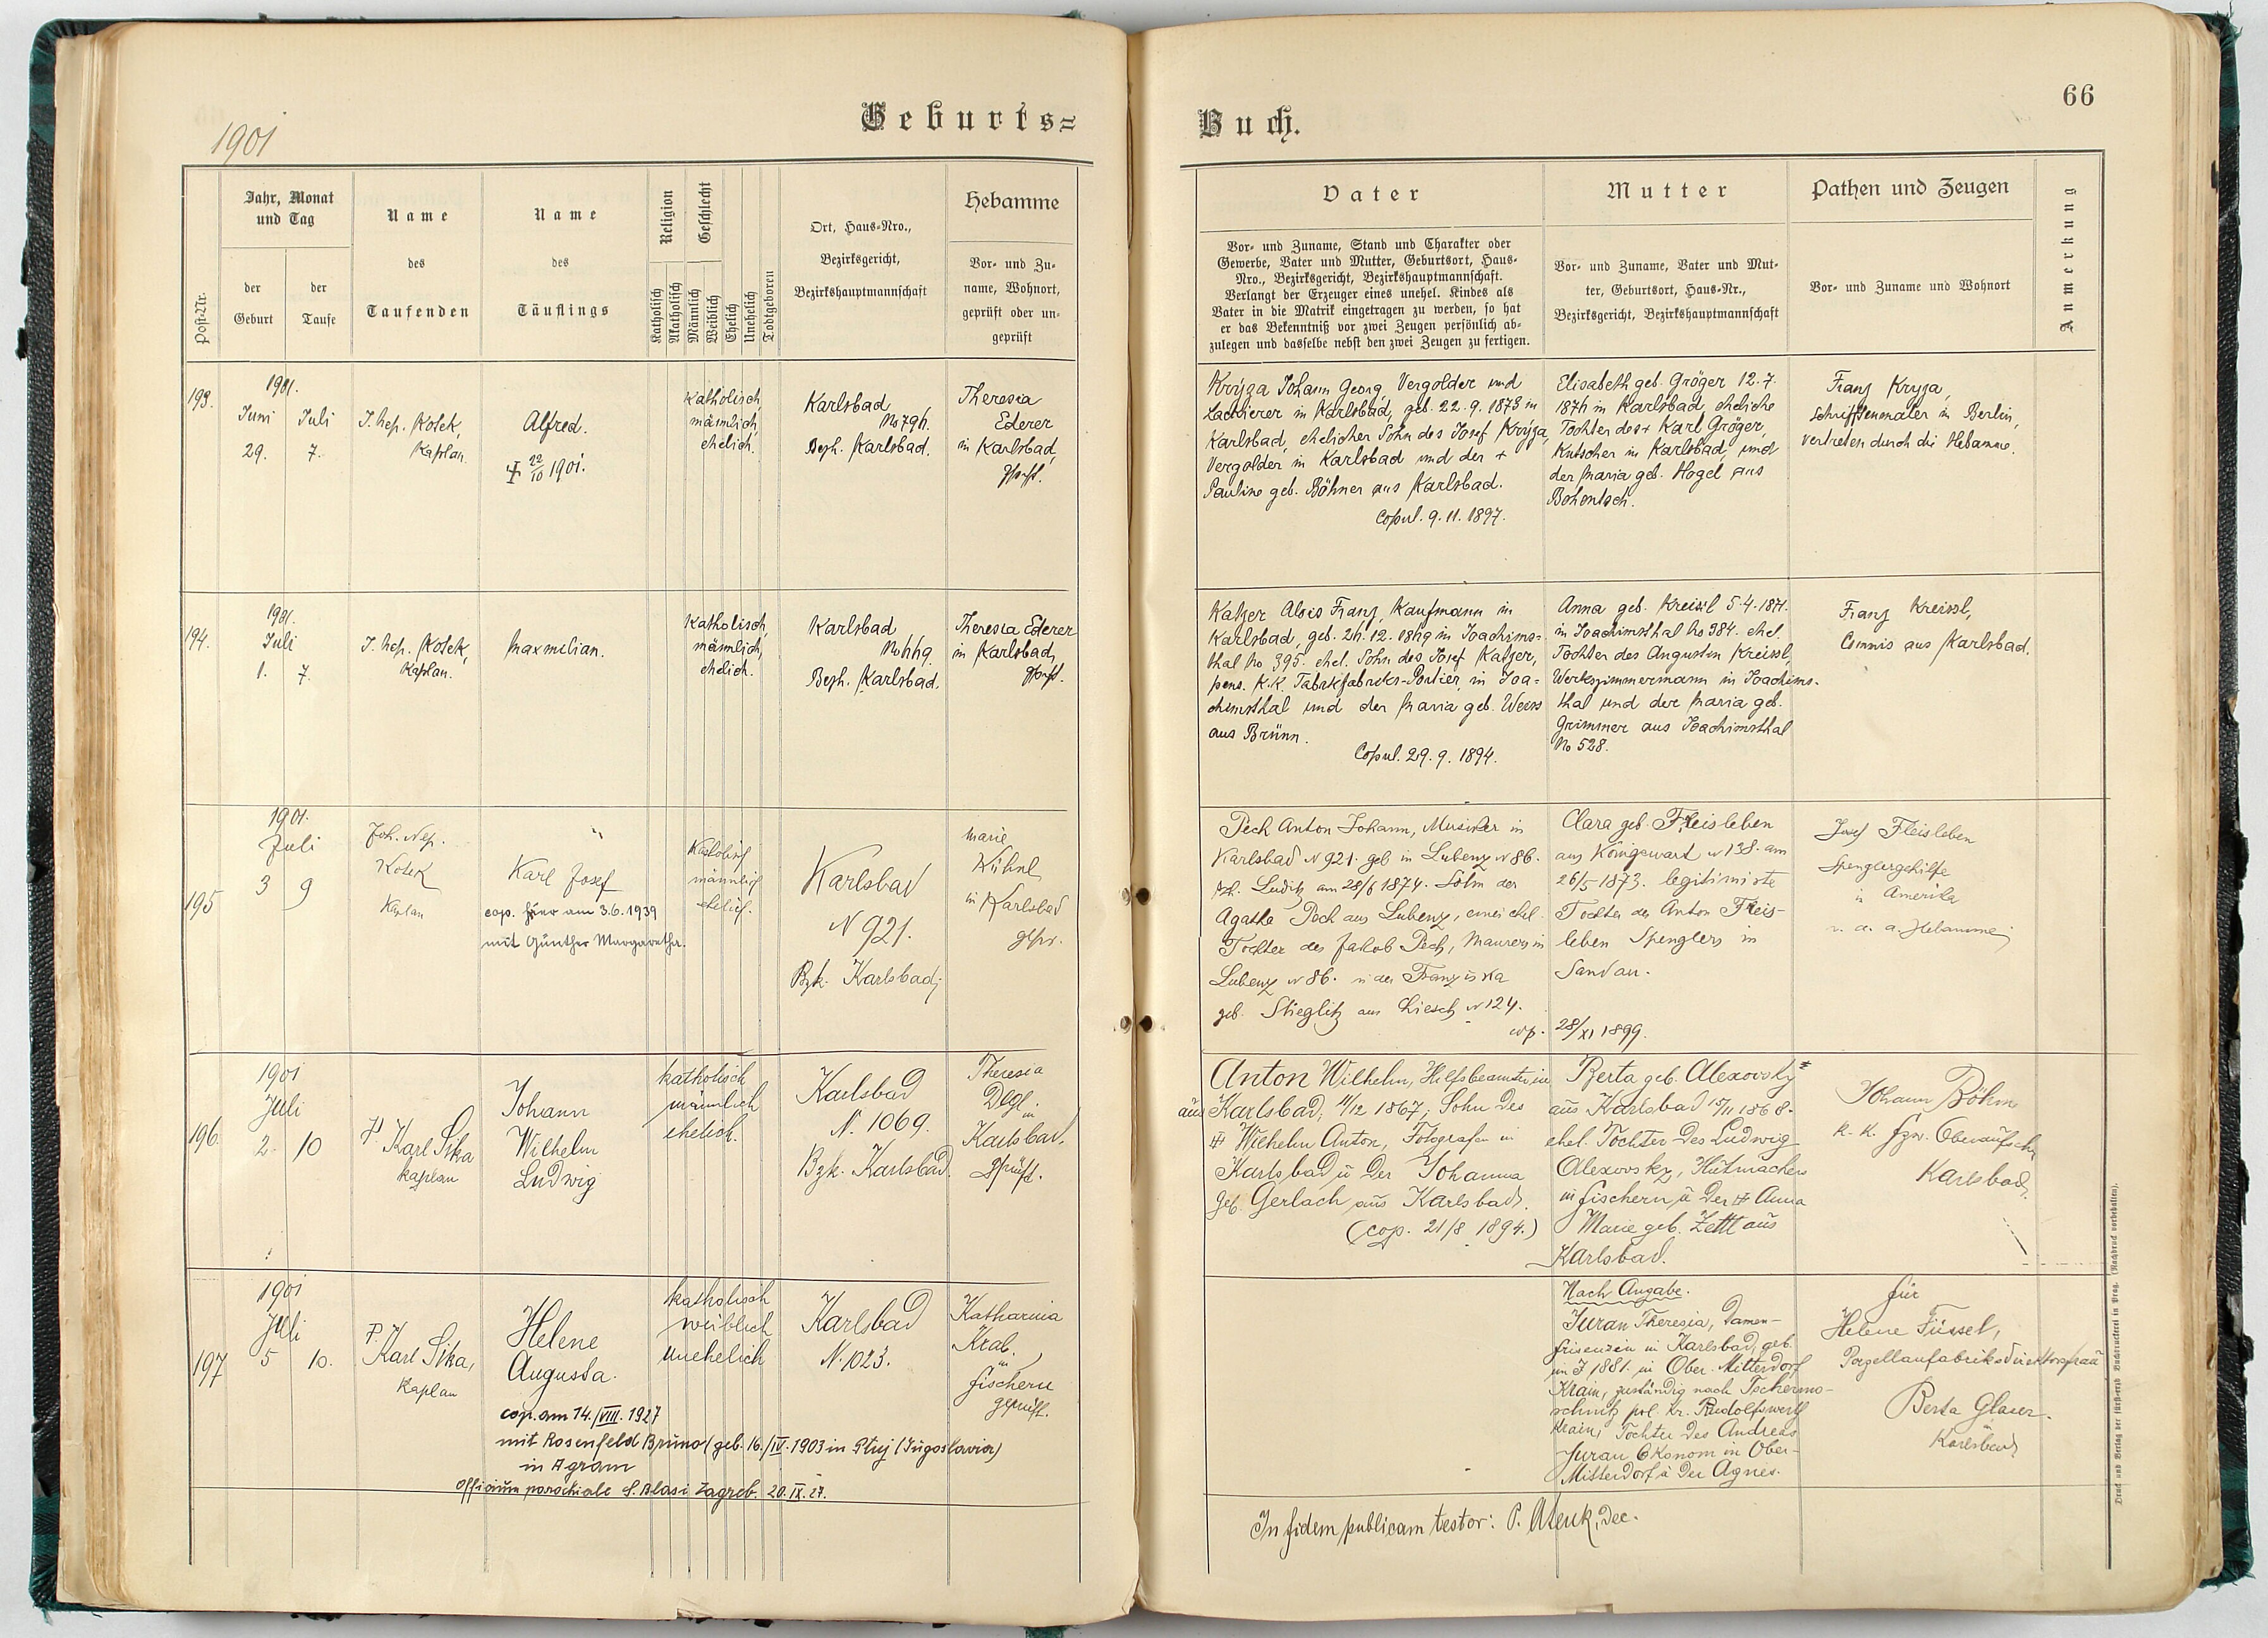 1901
Geburts=
Post-Nr.
Jahr, Monat
und Tag
der
Geburt
der
Taufe
Name
des
Taufenden
Name
des
Täuflings
Religion
Katholisch
Akatholisch
Geschlecht
Männlich
Weiblich
Ehelich
Unehelich
Todtgeboren
Ort, Haus-Nro.,
Bezirksgericht,
Bezirkshauptmannschaft
Hebamme
Vor- und Zu-
name, Wohnort,
geprüft oder un-
geprüft
193.
1901.
Juni
29.
Juli
7.
J. Nep. Kotek,
Kaplan.
Alfred.
22/10 1901.
Katholisch,
männlich,
ehelich.
Karlsbad
No 794.
Bezh. Karlsbad.
Theresia
Ederer
in Karlsbad,
194.
1901.
Juli
1. 7.
J. Nep. Kotek,
Kaplan.
Maxmilian.
Katholisch,
männlich,
ehelich.
Karlsbad
No 449.
Bezh. Karlsbad.
Theresia Ederer
in Karlsbad,
195
1901.
Juli
3 9
Joh. Nep.
Kotek
Kaplan
Karl Josef
cop. hier am 3.6.1939
mit Günther Margaretha.
Katholisch
männlich
ehelich.
Karlsbad
N 921.
Bzk. Karlsbad;
Marie
Kühnl
in Karlsbad
gepr.
196
1901
Juli
2 10
P. Karl Sika
Kaplan
Johann
Wilhelm
Ludwig
katholisch
männlich
ehelich.
Karlsbad
N. 1069.
Bzk. Karlsbad.
Theresia
Degl.
in
Karlsbad.
197
1901
Juli
5 10.
P.
Karl Sika,
Kaplan
Helene
Augusta.
katholisch
weiblich
unehelich
Karlsbad
N. 1023.
Katharina
Kral.
in
Fischern
geprüft.
cop. am 14./VIII. 1927
mit Rosenfeld Bruno (geb. 16./IV. 1903 in Ptuj (Jugoslavia)
in Agram
Officium parochiale S. Blasi Zagreb. 20.IX.27.
66
Buch.
Vater
Vor- und Zuname, Stand und Charakter oder
Gewerbe, Vater und Mutter, Geburtsort, Haus-
Nro., Bezirksgericht, Bezirkshauptmannschaft.
Verlangt der Erzeuger eines unehel. Kindes als
Vater in die Matrik eingetragen zu werden, so hat
er das Bekenntniß vor zwei Zeugen persönlich ab-
zulegen und dasselbe nebst den zwei Zeugen zu fertigen.
Mutter
Vor- und Zuname, Vater und Mut-
ter, Geburtsort, Haus-Nr.,
Bezirksgericht, Bezirkshauptmannschaft
Pathen und Zeugen
Vor- und Zuname und Wohnort
Anmerkung
Kryza Johann Georg, Vergolder und
Lackierer in Karlsbad, geb. 22.9.1873 in
Karlsbad, ehelicher Sohn des Josef Kryza,
Vergolder in Karlsbad und der +
Pauline geb. Böhner aus Karlsbad.
Copul. 9.11.1897.
Elisabeth geb. Gröger 12.7.
1874 in Karlsbad, eheliche
Tochter des + Karl Gröger,
Kutscher in Karlsbad, und
der Maria geb. Hagel aus
Franz Kryza,
Schriftenmaler in Berlin,
vertreten durch die Hebamme.
Katzer Alois Franz, Kaufmann in
Karlsbad, geb. 24.12.1869 in Joachims-
thal No 395. ehel. Sohn des Josef Katzer,
pens. K.K. Tabakfabriks-Portier in Joa-
chimsthal und der Maria geb. Weiss
aus Brünn.
Copul. 29.9.1894.
Anna geb. Kreissl 5.4.1871.
in Joachimsthal No 384. ehel.
Tochter des Augustin Kreissl,
Werkszimmermann in Joachims-
thal und der Maria geb.
Grimmer aus Joachimsthal
No 528.
Franz Kreissl,
Commis aus Karlsbad.
Pech Anton Johann, Musiker in
Karlsbad N 921. geb in Lubenz N 86.
Bzk. Luditz am 28/6 1874. Sohn der
Agatha Pech aus Lubenz, einer ehel.
Tochter des Jakob Pech, Maurers in
Lubenz N 86. u der Franziska
geb. Stieglitz aus Liesch N 124.
cop. 28/XI 1899.
Clara geb. Fleisleben
aus Königswart N 138. am
26/5 1873. legitimirte
Tochter des Anton Fleis-
leben Spenglers in
Sandau.
Josef Fleisleben
Spenglergehilfe
in Amerika
v. d. a. Hebamme
Anton Wilhelm, Hilfsbeamter in
aus Karlsbad, 4/12 1867, Sohn des
Wilhelm Anton, Fotografen in
Karlsbad u der Johanna
geb. Gerlach aus Karlsbad.
(cop. 21/8 1894.)
Berta geb. Alexovsky
aus Karlsbad 15/11 1868.
ehel. Tochter des Ludwig
Alexovsky, Hutmachers
in Fischern u der Anna
Marie geb. Zettl aus
Karlsbad.
Johann Böhm
k. k. fzw. Oberaufseher
Karlsbad.
Nach Angabe.
Juran Theresia, Damen-
friseuzin in Karlsbad, geb.
im J 1881. in Ober-Mitterdorf
Krain, zuständig nach Tscherme-
schnitz pol. Bz. Rudolfswerth
Krain, Tochter des Andreas
Juran Ökonom in Ober-
Mitterdorf u der Agnes.
für
Helene Füssel,
Porzellanfabriksdirektorsfrau
Berta Glaser.
in
Karlsbad
In fidem publicam testor:
Druck und Verlag der fürst-erzb Buchdruckerei in Prag. (Nachdruck vorbehalten).